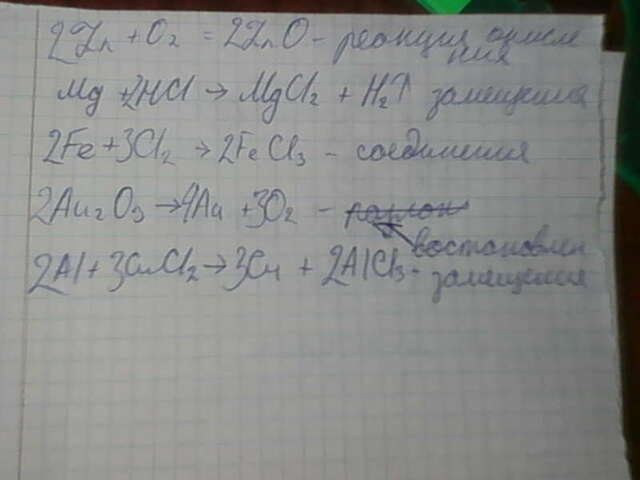 2Zn + O2 = 2ZnO - реакция окисле
ния
Mg + 2HCl → MgCl2 + H2↑ замещения
2Fe + 3Cl2 → 2FeCl3 - соединения
2Au2O3 → 4Au + 3O2 - разлож
востановлен
2Al + 3CuCl2 → 3Cu + 2AlCl3 - замещения